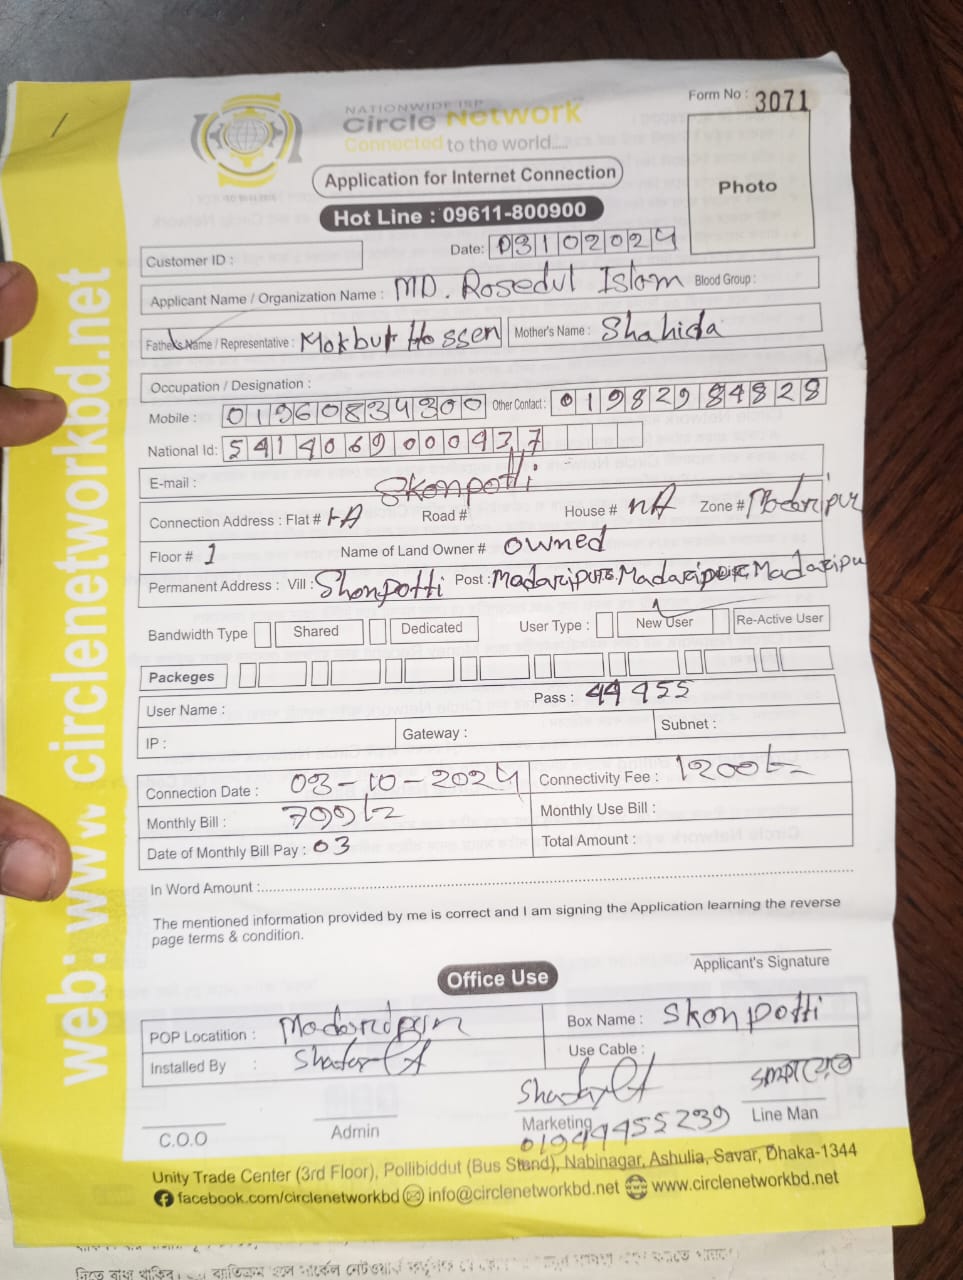 Form No : 3071
NATIONWIDE ISP
Circle Network
Connected to the world.....
Photo
Application for Internet Connection
Hot Line : 09611-800900
Customer ID :
Date: 03102024
Applicant Name / Organization Name : MD. Rosedul Islam Blood Group :
Father's Name / Representative : Mokbul Hossen Mother's Name : Shahida
Occupation / Designation :
Mobile : 01960834300 Other Contact : 01982984828
National Id: 5414069000937
E-mail :
Skonpotti
Connection Address : Flat # Road # House # nA Zone # Madaripur
Floor # 1 Name of Land Owner # owned
Permanent Address : Vill : Shonpotti Post : Madaripur Madaripur Madaripu
Bandwidth Type Shared Dedicated User Type : New User Re-Active User
Packeges
User Name : Pass : 44455
IP : Gateway : Subnet :
Connection Date : 03-10-2024 Connectivity Fee : 1200tz
Monthly Bill : 799tz Monthly Use Bill :
Date of Monthly Bill Pay : 03 Total Amount :
In Word Amount :
The mentioned information provided by me is correct and I am signing the Application learning the reverse
page terms & condition.
Applicant's Signature
Office Use
POP Locatition : Madaripur Box Name : Skonpotti
Installed By : Use Cable :
C.O.O Admin Marketing Line Man
01944455239
Unity Trade Center (3rd Floor), Pollibiddut (Bus Stend), Nabinagar, Ashulia, Savar, Dhaka-1344
facebook.com/circlenetworkbd info@circlenetworkbd.net www.circlenetworkbd.net
web: www.circlenetworkbd.net